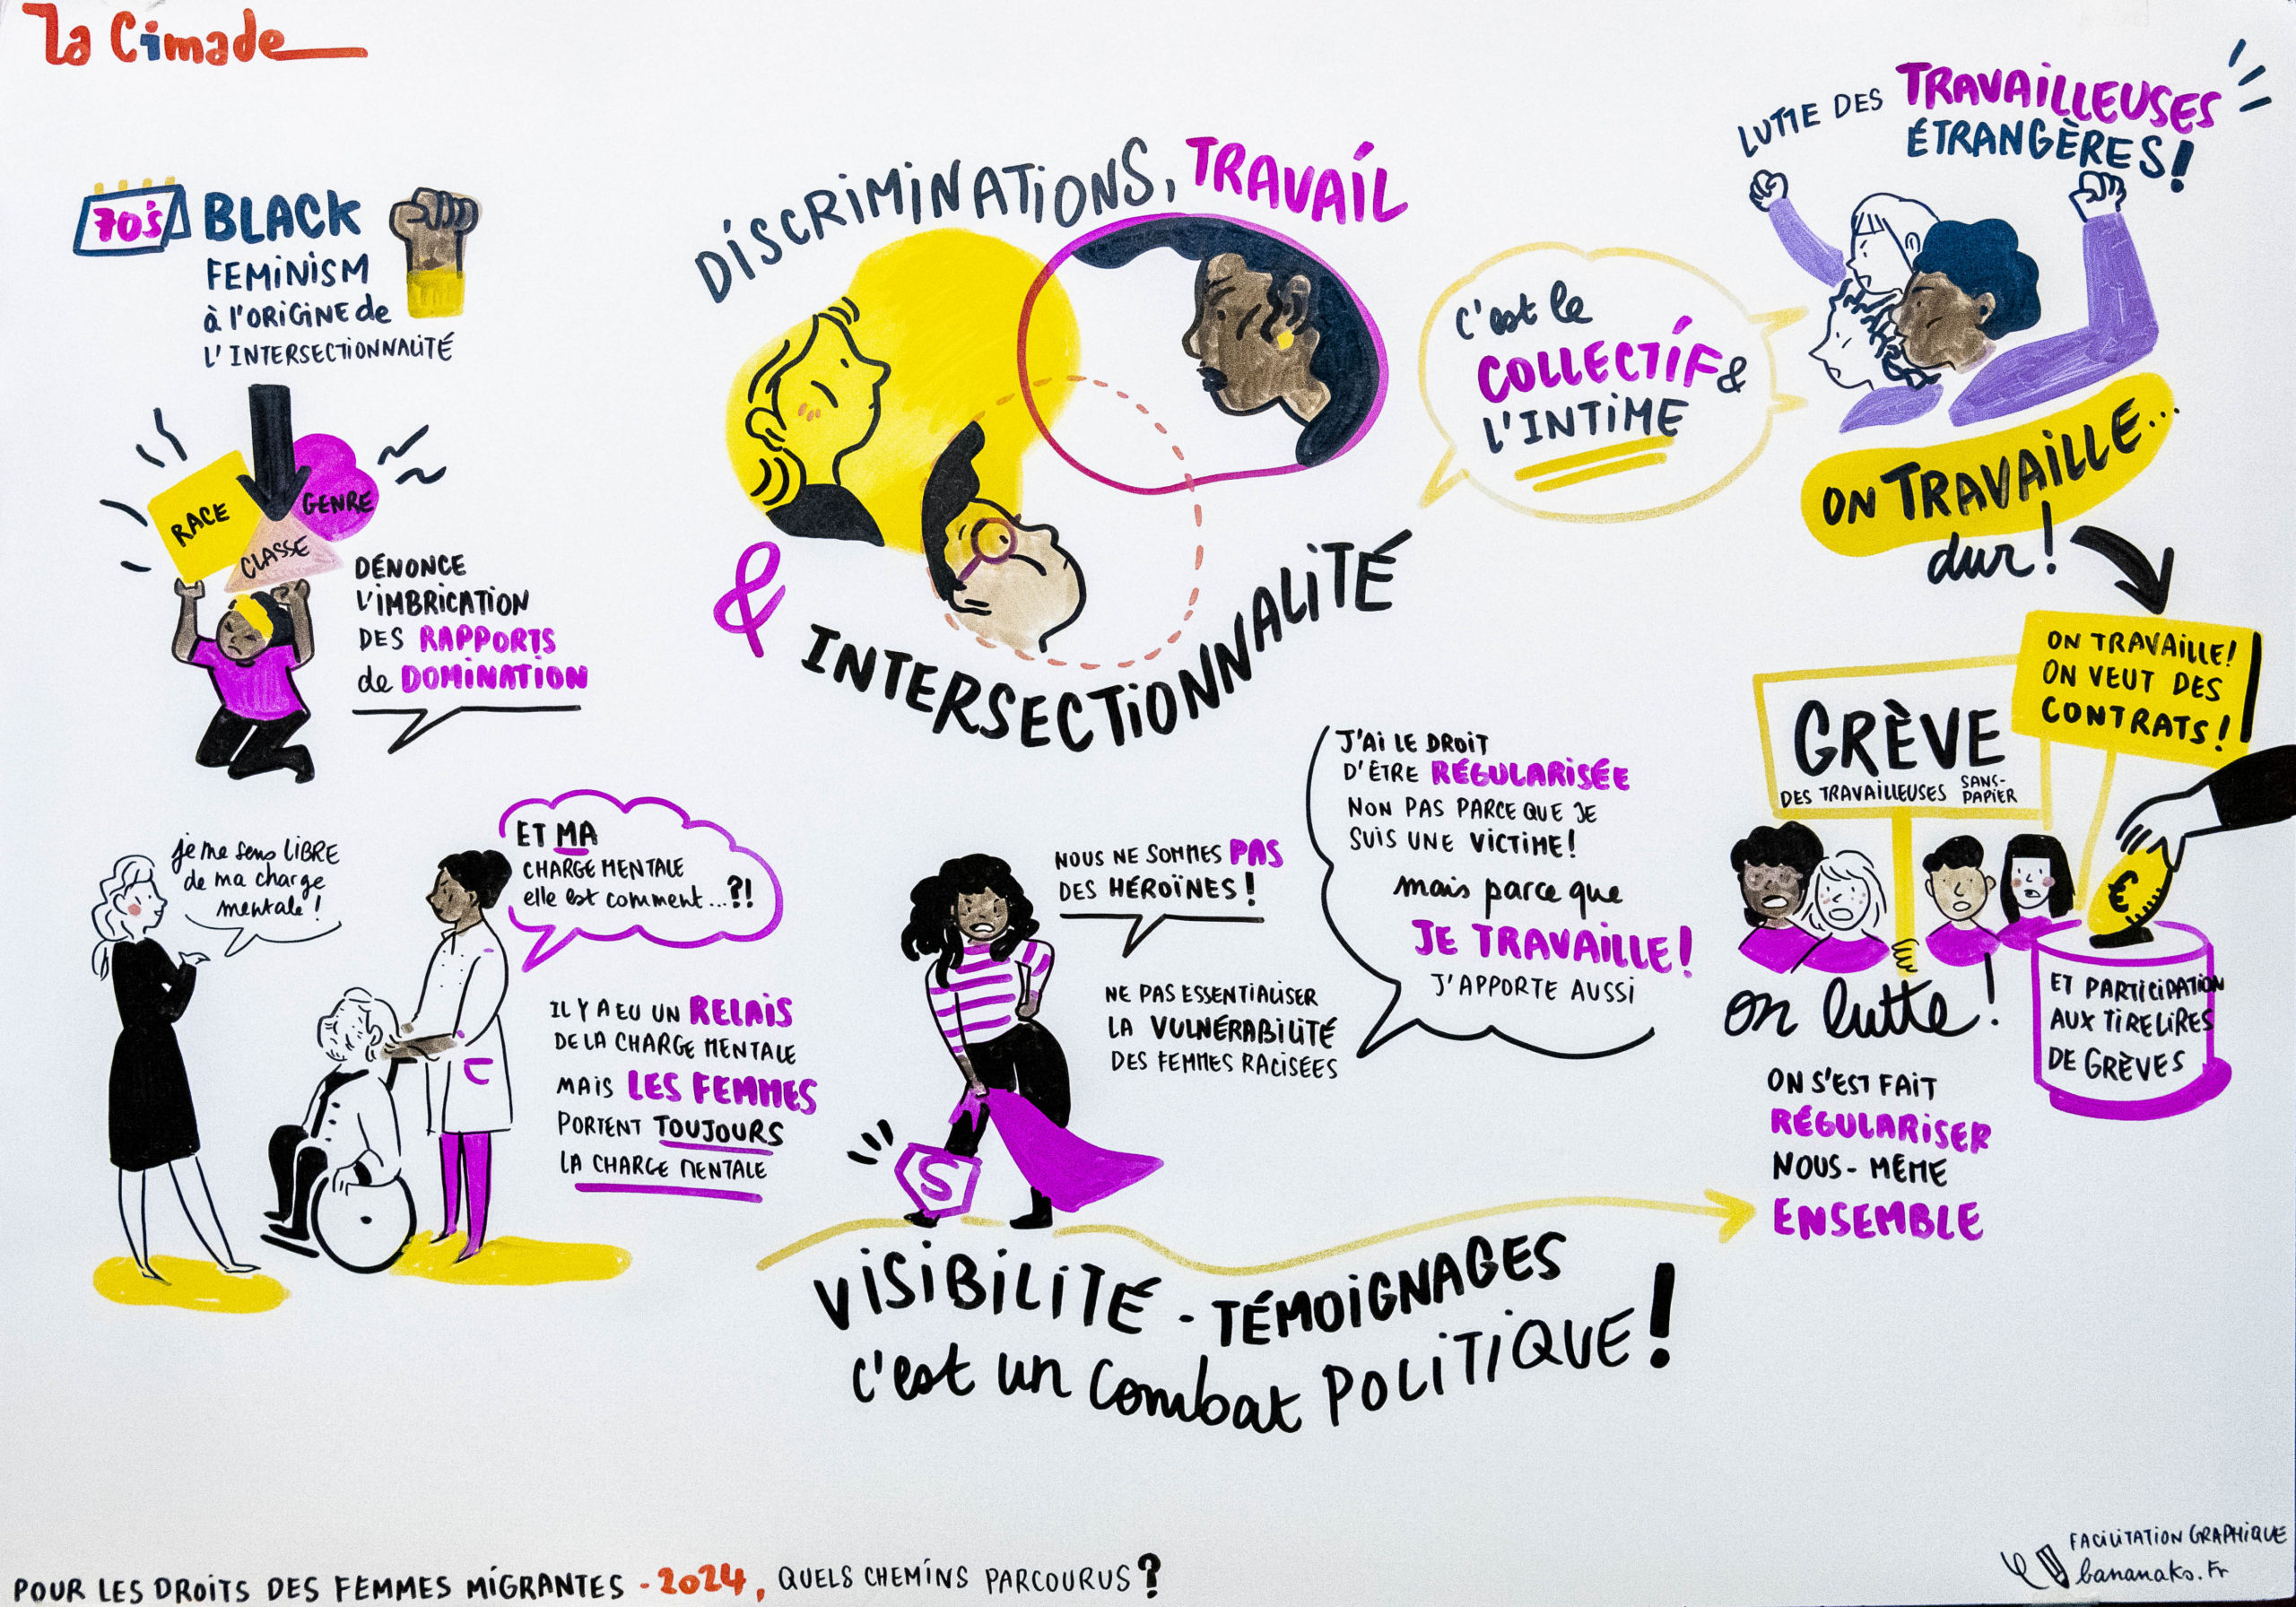 la Cimade
70's BLACK
FEMINISM
à l'ORIGINE de
L'INTERSECTIONNALITÉ
RACE
GENRE
CLASSE
DÉNONCE
L'IMBRICATION
DES RAPPORTS
de DOMINATION
DISCRIMINATIONS, TRAVAIL
& INTERSECTIONNALITÉ
c'est le
COLLECTIF &
L'INTIME
LUTTE DES TRAVAILLEUSES
ÉTRANGÈRES!
ON TRAVAILLE...
dur!
ON TRAVAILLE!
ON VEUT DES
CONTRATS!
GRÈVE
DES TRAVAILLEUSES SANS-
PAPIER
€
ET PARTICIPATION
AUX TIRELIRES
DE GRÈVES
on lutte!
ON S'EST FAIT
RÉGULARISER
NOUS-MÊME
ENSEMBLE
je me sens LIBRE
de ma charge
mentale!
ET MA
CHARGE MENTALE
elle est comment...?!
IL Y A EU UN RELAIS
DE LA CHARGE MENTALE
MAIS LES FEMMES
PORTENT TOUJOURS
LA CHARGE MENTALE
S
NOUS NE SOMMES PAS
DES HÉROÏNES!
NE PAS ESSENTIALISER
LA VULNÉRABILITÉ
DES FEMMES RACISÉES
J'AI LE DROIT
D'ÊTRE RÉGULARISÉE
NON PAS PARCE QUE JE
SUIS UNE VICTIME!
mais parce que
JE TRAVAILLE!
J'APPORTE AUSSI
VISIBILITÉ - TÉMOIGNAGES
c'est un combat POLITIQUE!
POUR LES DROITS DES FEMMES MIGRANTES - 2024, QUELS CHEMINS PARCOURUS?
FACILITATION GRAPHIQUE
bananako.fr